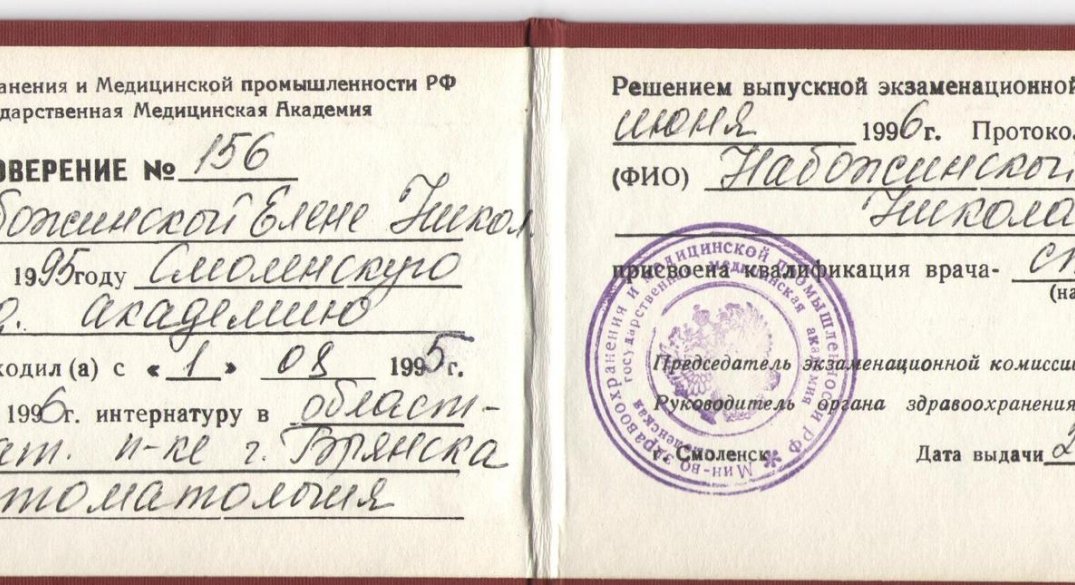 анения и Медицинской промышленности РФ
ударственная Медицинская Академия
ОВЕРЕНИЕ № 156
божинской Елене Никол
1995 году Смоленскую
академию
ходил (а) с « 1 » 08 1995 г.
1996 г. интернатуру в област-
ат. п-ке г. Брянска
томатология
Решением выпускной экзаменационной
июня 1996 г. Протоко
(ФИО) Набожинской
Никола
присвоена квалификация врача- ст
(на
Председатель экзаменационной комисси
Руководитель органа здравоохранения
г. Смоленск
Дата выдачи 2
Мин-во здравоохранения и медицинской промышленности РФ
Смоленская государственная медицинская академия